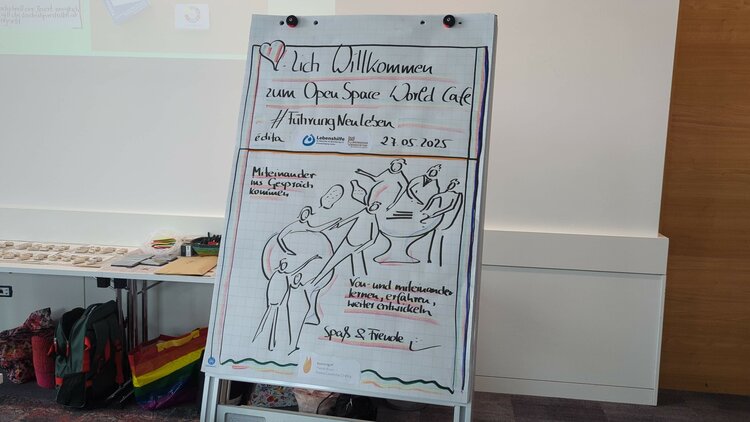 -lich Willkommen
zum Open Space World Café
#FührungNeuLeben
édita Lebenshilfe 27.05.2025
Miteinander
ins Gespräch
kommen
Von- und miteinander
lernen, erfahren,
weiter entwickeln
Spaß & Freude